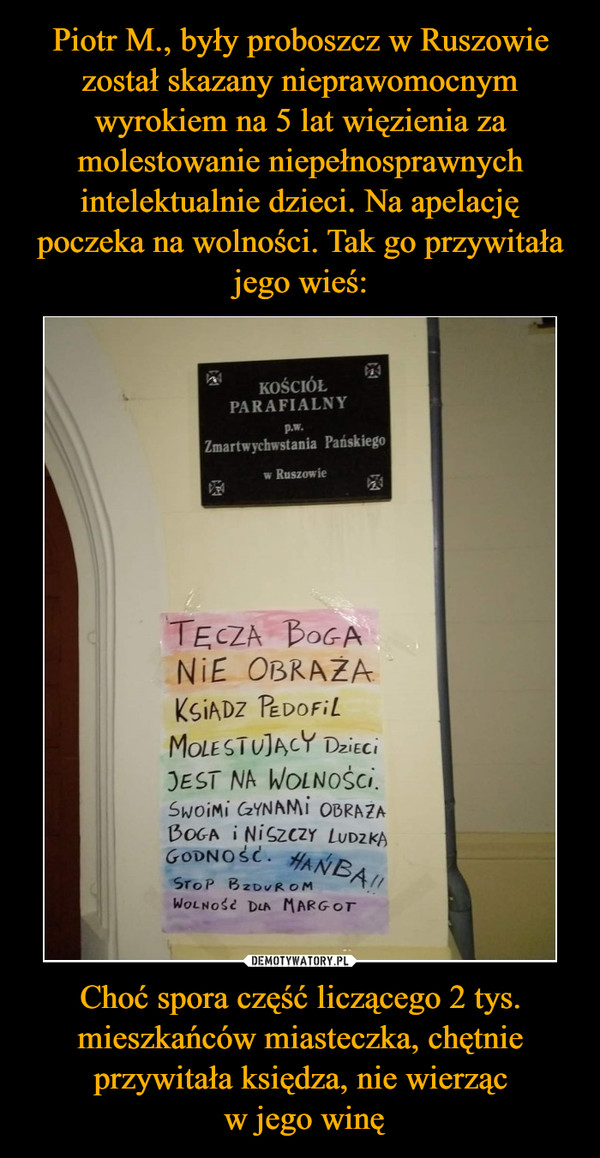 Piotr M., były proboszcz w Ruszowie
został skazany nieprawomocnym
wyrokiem na 5 lat więzienia za
molestowanie niepełnosprawnych
intelektualnie dzieci. Na apelację
poczeka na wolności. Tak go przywitała
jego wieś:
KOŚCIÓŁ
PARAFIALNY
p.w.
Zmartwychwstania Pańskiego
w Ruszowie
TĘCZA BOGA
NiE OBRAŻA
KSiADZ PEDOFiL
MOLESTUJĄCY DZIECi
JEST NA WOLNOŚCi.
SWOiMi CZYNAMi OBRAŻA
BOGA i NiSZCZY LUDZKĄ
GODNOŚĆ. HAŃBA!!
STOP BZDUROM
WOLNOŚĆ DLA MARGOT
DEMOTYWATORY.PL
Choć spora część liczącego 2 tys.
mieszkańców miasteczka, chętnie
przywitała księdza, nie wierząc
w jego winę